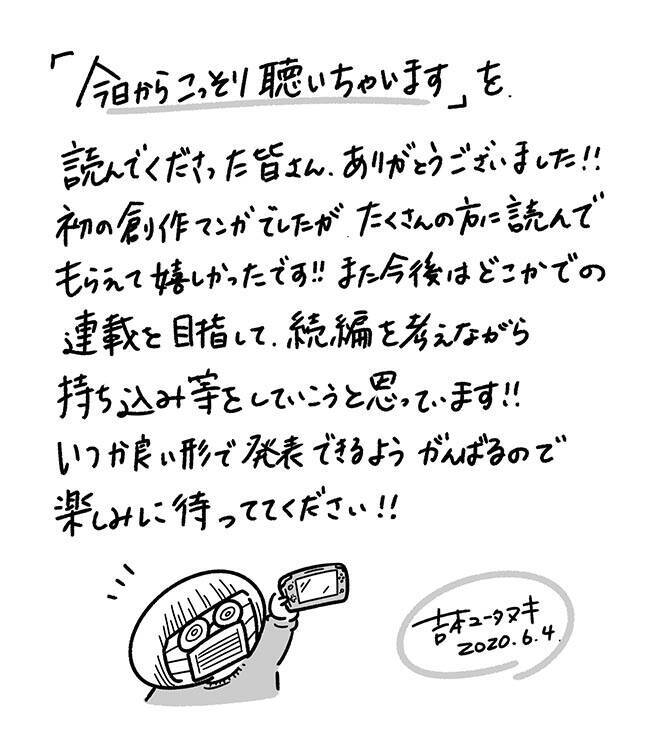 「今日からこっそり聴いちゃいます」を.
読んでくださった皆さん、ありがとうございました!!
初の創作マンガでしたが、たくさんの方に読んで
もらえて嬉しかったです!! また今後はどこかでの
連載を目指して、続編を考えながら
持ち込み等をしていこうと思っています!!
いつか良い形で発表できるよう がんばるので
楽しみに待っててください!!
吉本ユータヌキ
2020.6.4.